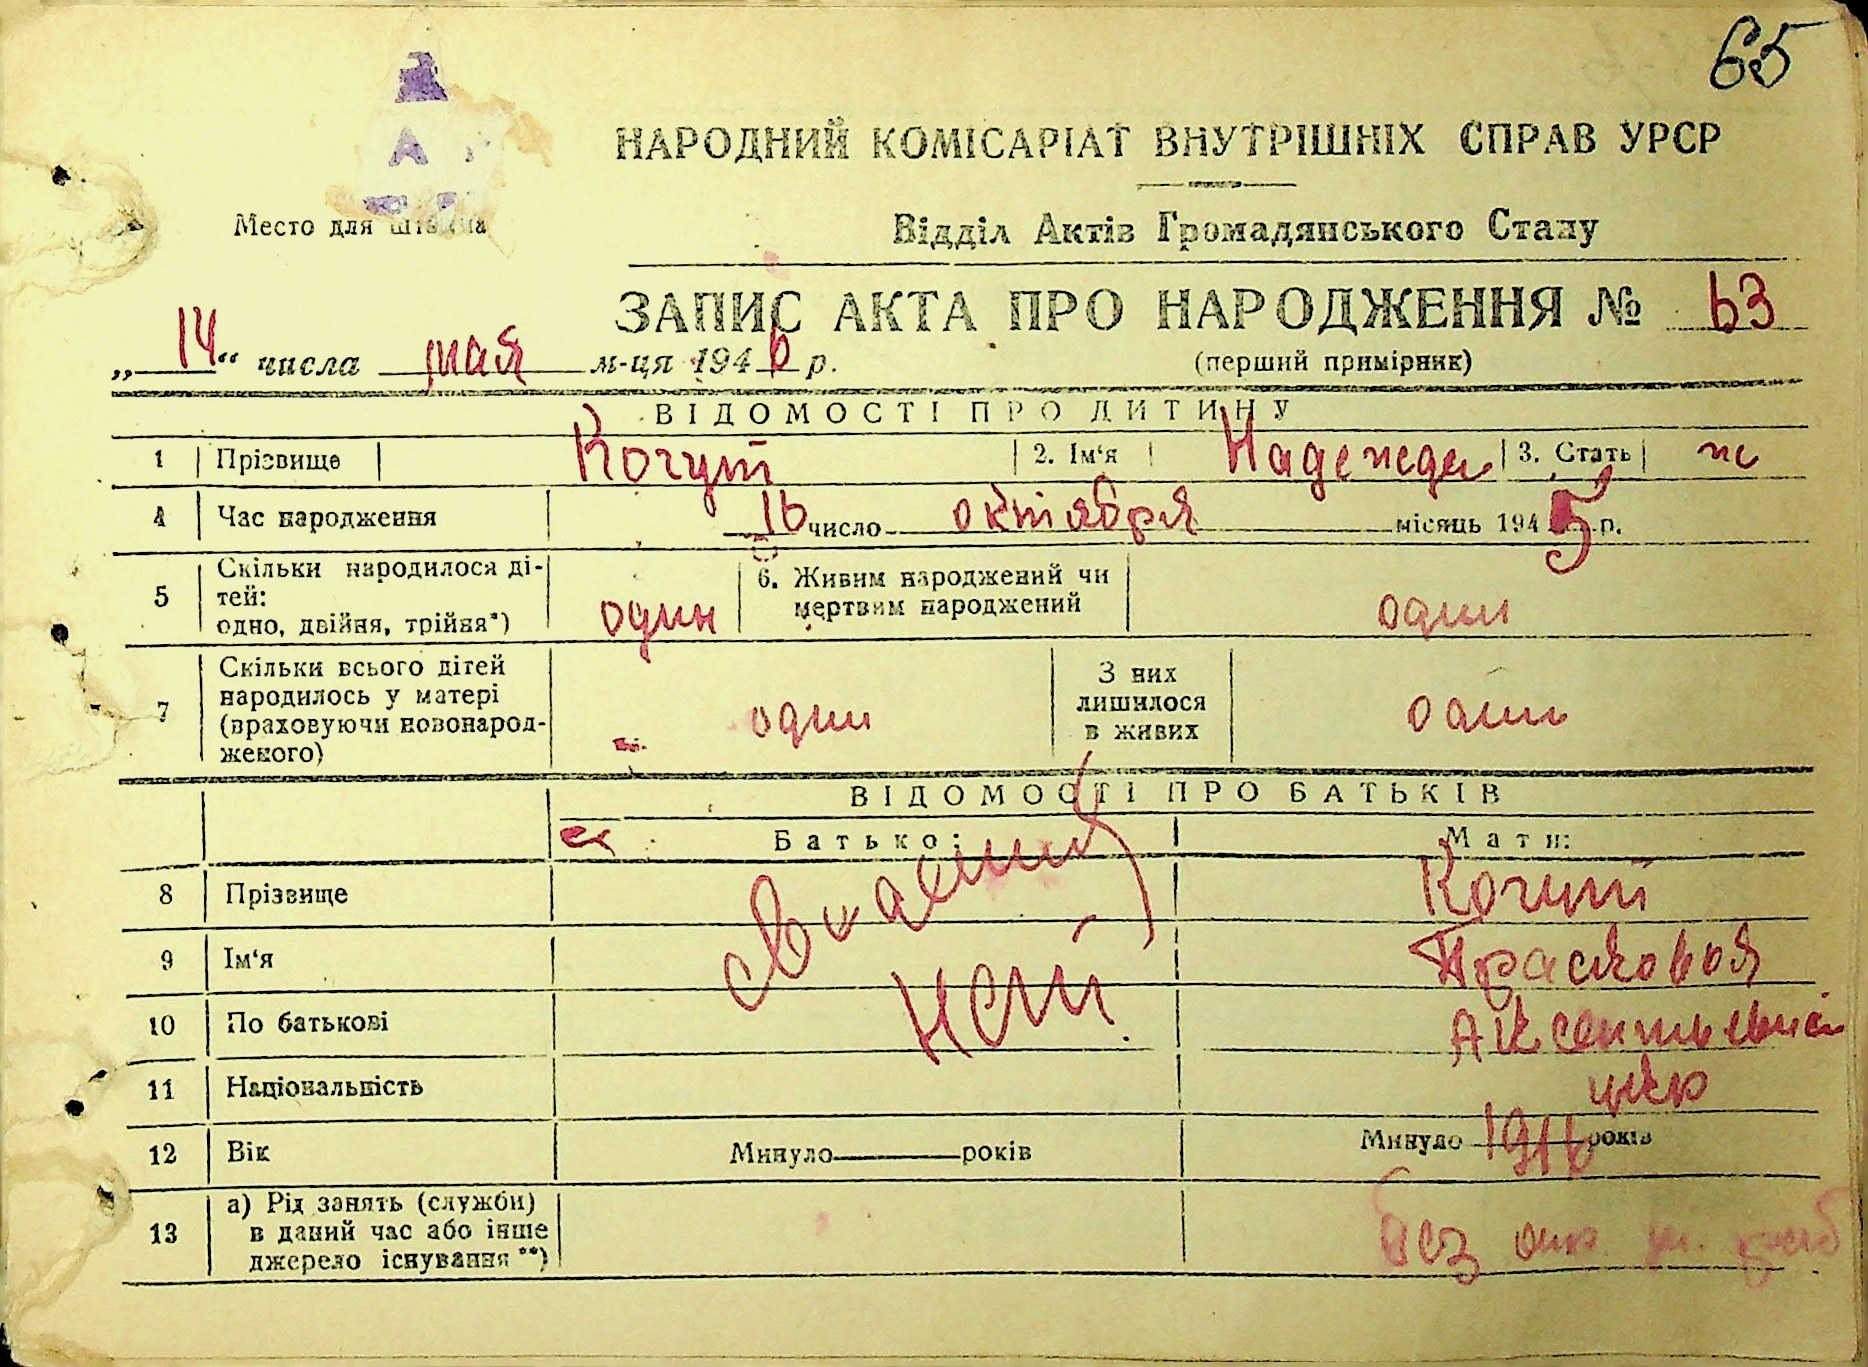 65
НАРОДНИЙ КОМІСАРІАТ ВНУТРІШНІХ СПРАВ УРСР
Место для
Відділ Актів Громадянського Стану
ЗАПИС АКТА ПРО НАРОДЖЕННЯ № 63
„14“ числа мая м-ця 1946 р.
(перший примірник)
ВІДОМОСТІ ПРО ДИТИНУ
1 Прізвище Когут 2. Ім'я Надежда 3. Стать ж
4 Час народження 16 число октября місяць 1945 р.
5 Скільки народилося ді-
тей:
одно, двійня, трійня*) один
6. Живим народжений чи
мертвим народжений один
7 Скільки всього дітей
народилось у матері
(враховуючи новонарод-
женого) один
З них
лишилося
в живих один
ВІДОМОСТІ ПРО БАТЬКІВ
Батько: Мати:
8 Прізвище Когут
9 Ім'я Прасковья
нет
10 По батькові
11 Національність укр
12 Вік Минуло років Минуло 1916 років
13 а) Рід занять (служби)
в даний час або інше
джерело існування **) без